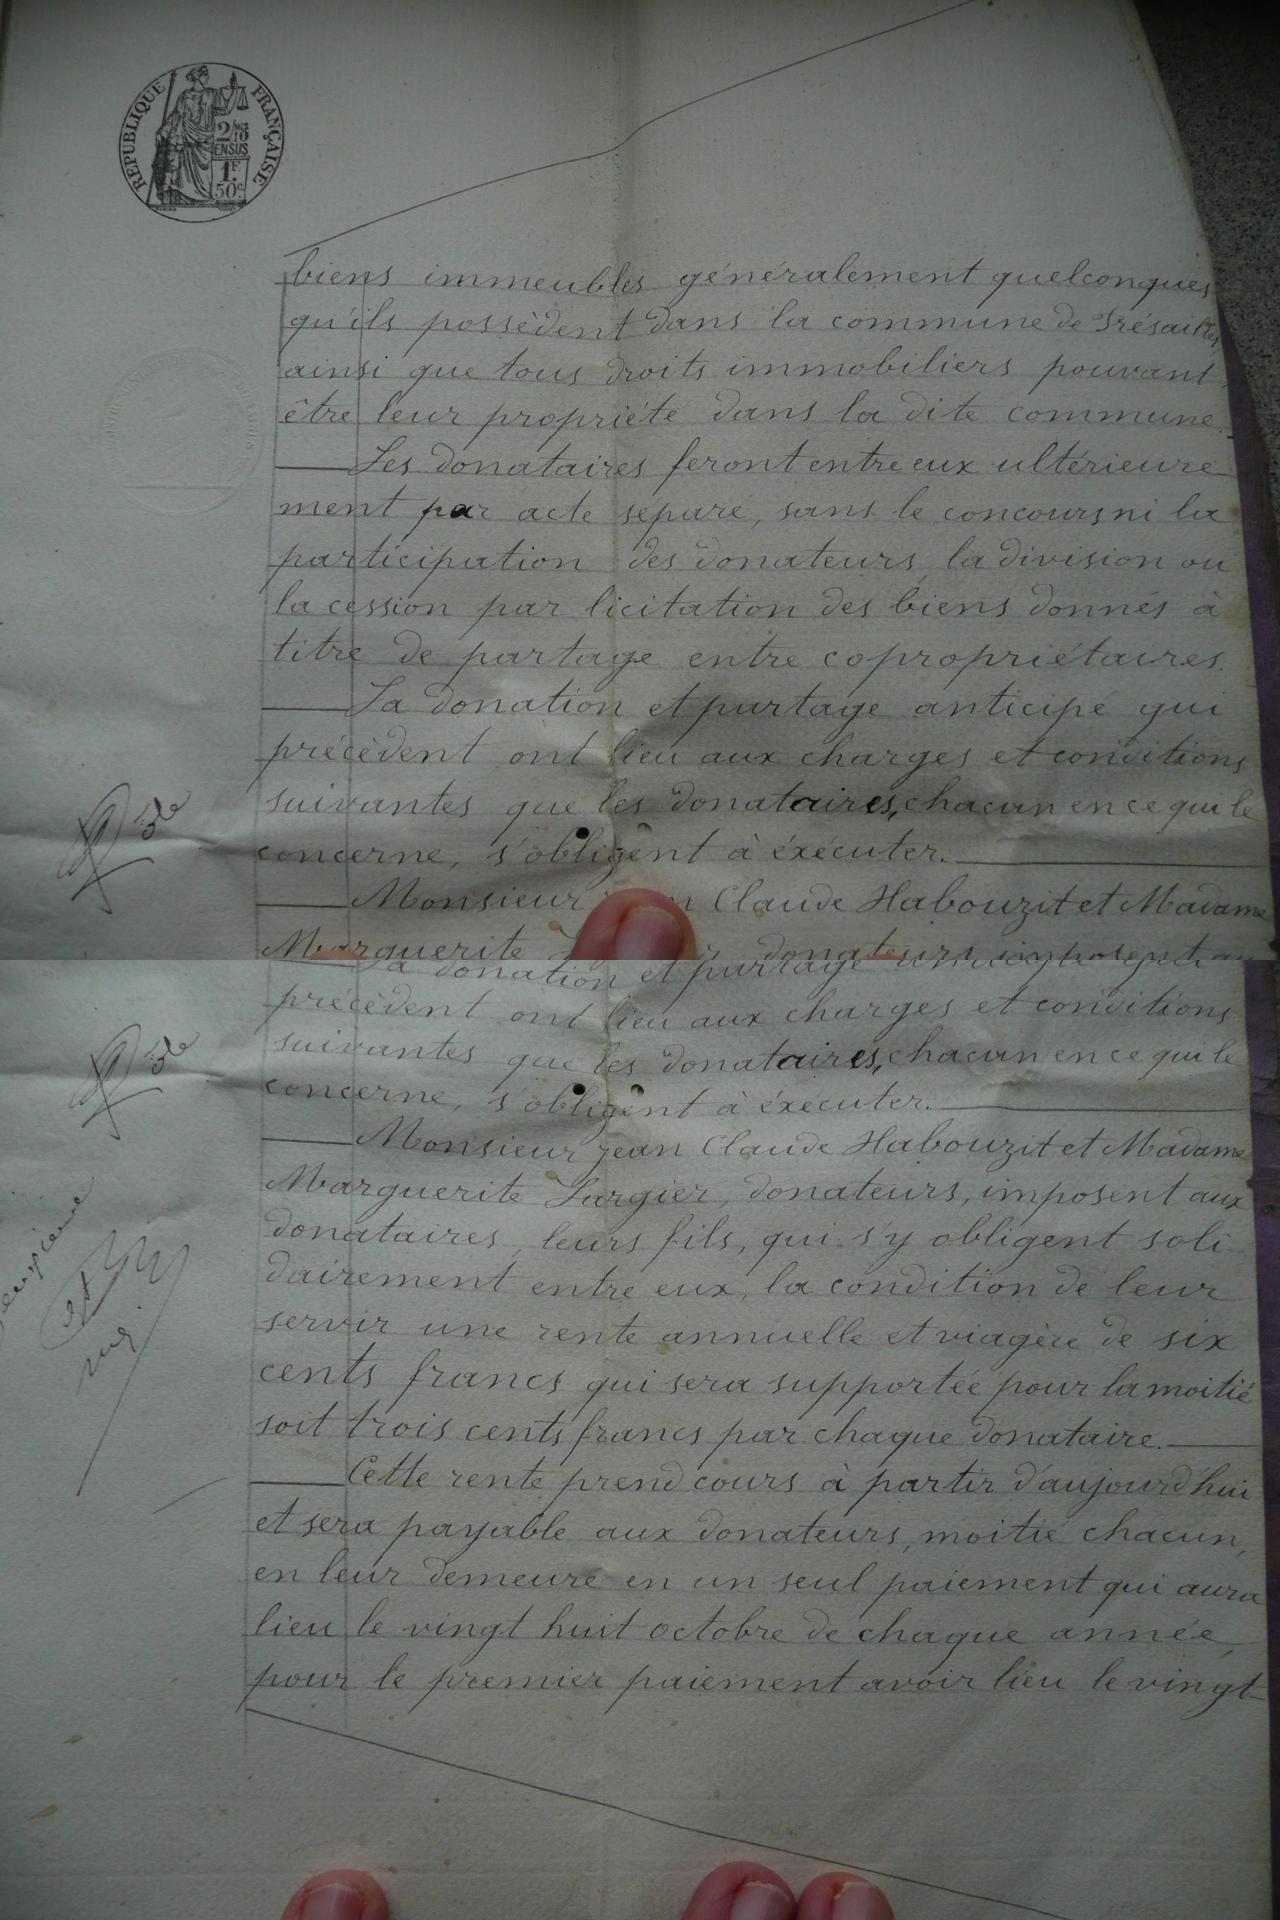 RÉPUBLIQUE FRANÇAISE
2/10
EN SUS
1F
50c
biens immeubles généralement quelconques
qu'ils possèdent dans la commune de Présailles,
ainsi que tous droits immobiliers pouvant
être leur propriété dans la dite commune.
Les donataires feront entre eux ultérieure
ment par acte séparé, sans le concours ni la
participation des donateurs, la division ou
la cession par licitation des biens donnés à
titre de partage entre copropriétaires.
La donation et partage anticipé qui
précèdent ont lieu aux charges et conditions
suivantes que les donataires, chacun en ce qui le
concerne, s'obligent à éxécuter.
Monsieur Claude Habouzit et Madame
Marguerite donateurs imposent au
La donation et partage
précèdent ont lieu aux charges et conditions
suivantes que les donataires, chacun en ce qui le
concerne, s'obligent à éxécuter.
Monsieur Jean Claude Habouzit et Madame
Marguerite Largier, donateurs, imposent aux
donataires, leurs fils, qui s'y obligent soli
dairement entre eux, la condition de leur
servir une rente annuelle et viagère de six
cents francs qui sera supportée pour la moitié
soit trois cents francs par chaque donataire.
Cette rente prend cours à partir d'aujourd'hui
et sera payable aux donateurs, moitié chacun,
en leur demeure en un seul paiement qui aura
lieu le vingt huit octobre de chaque année,
pour le premier paiement avoir lieu le vingt